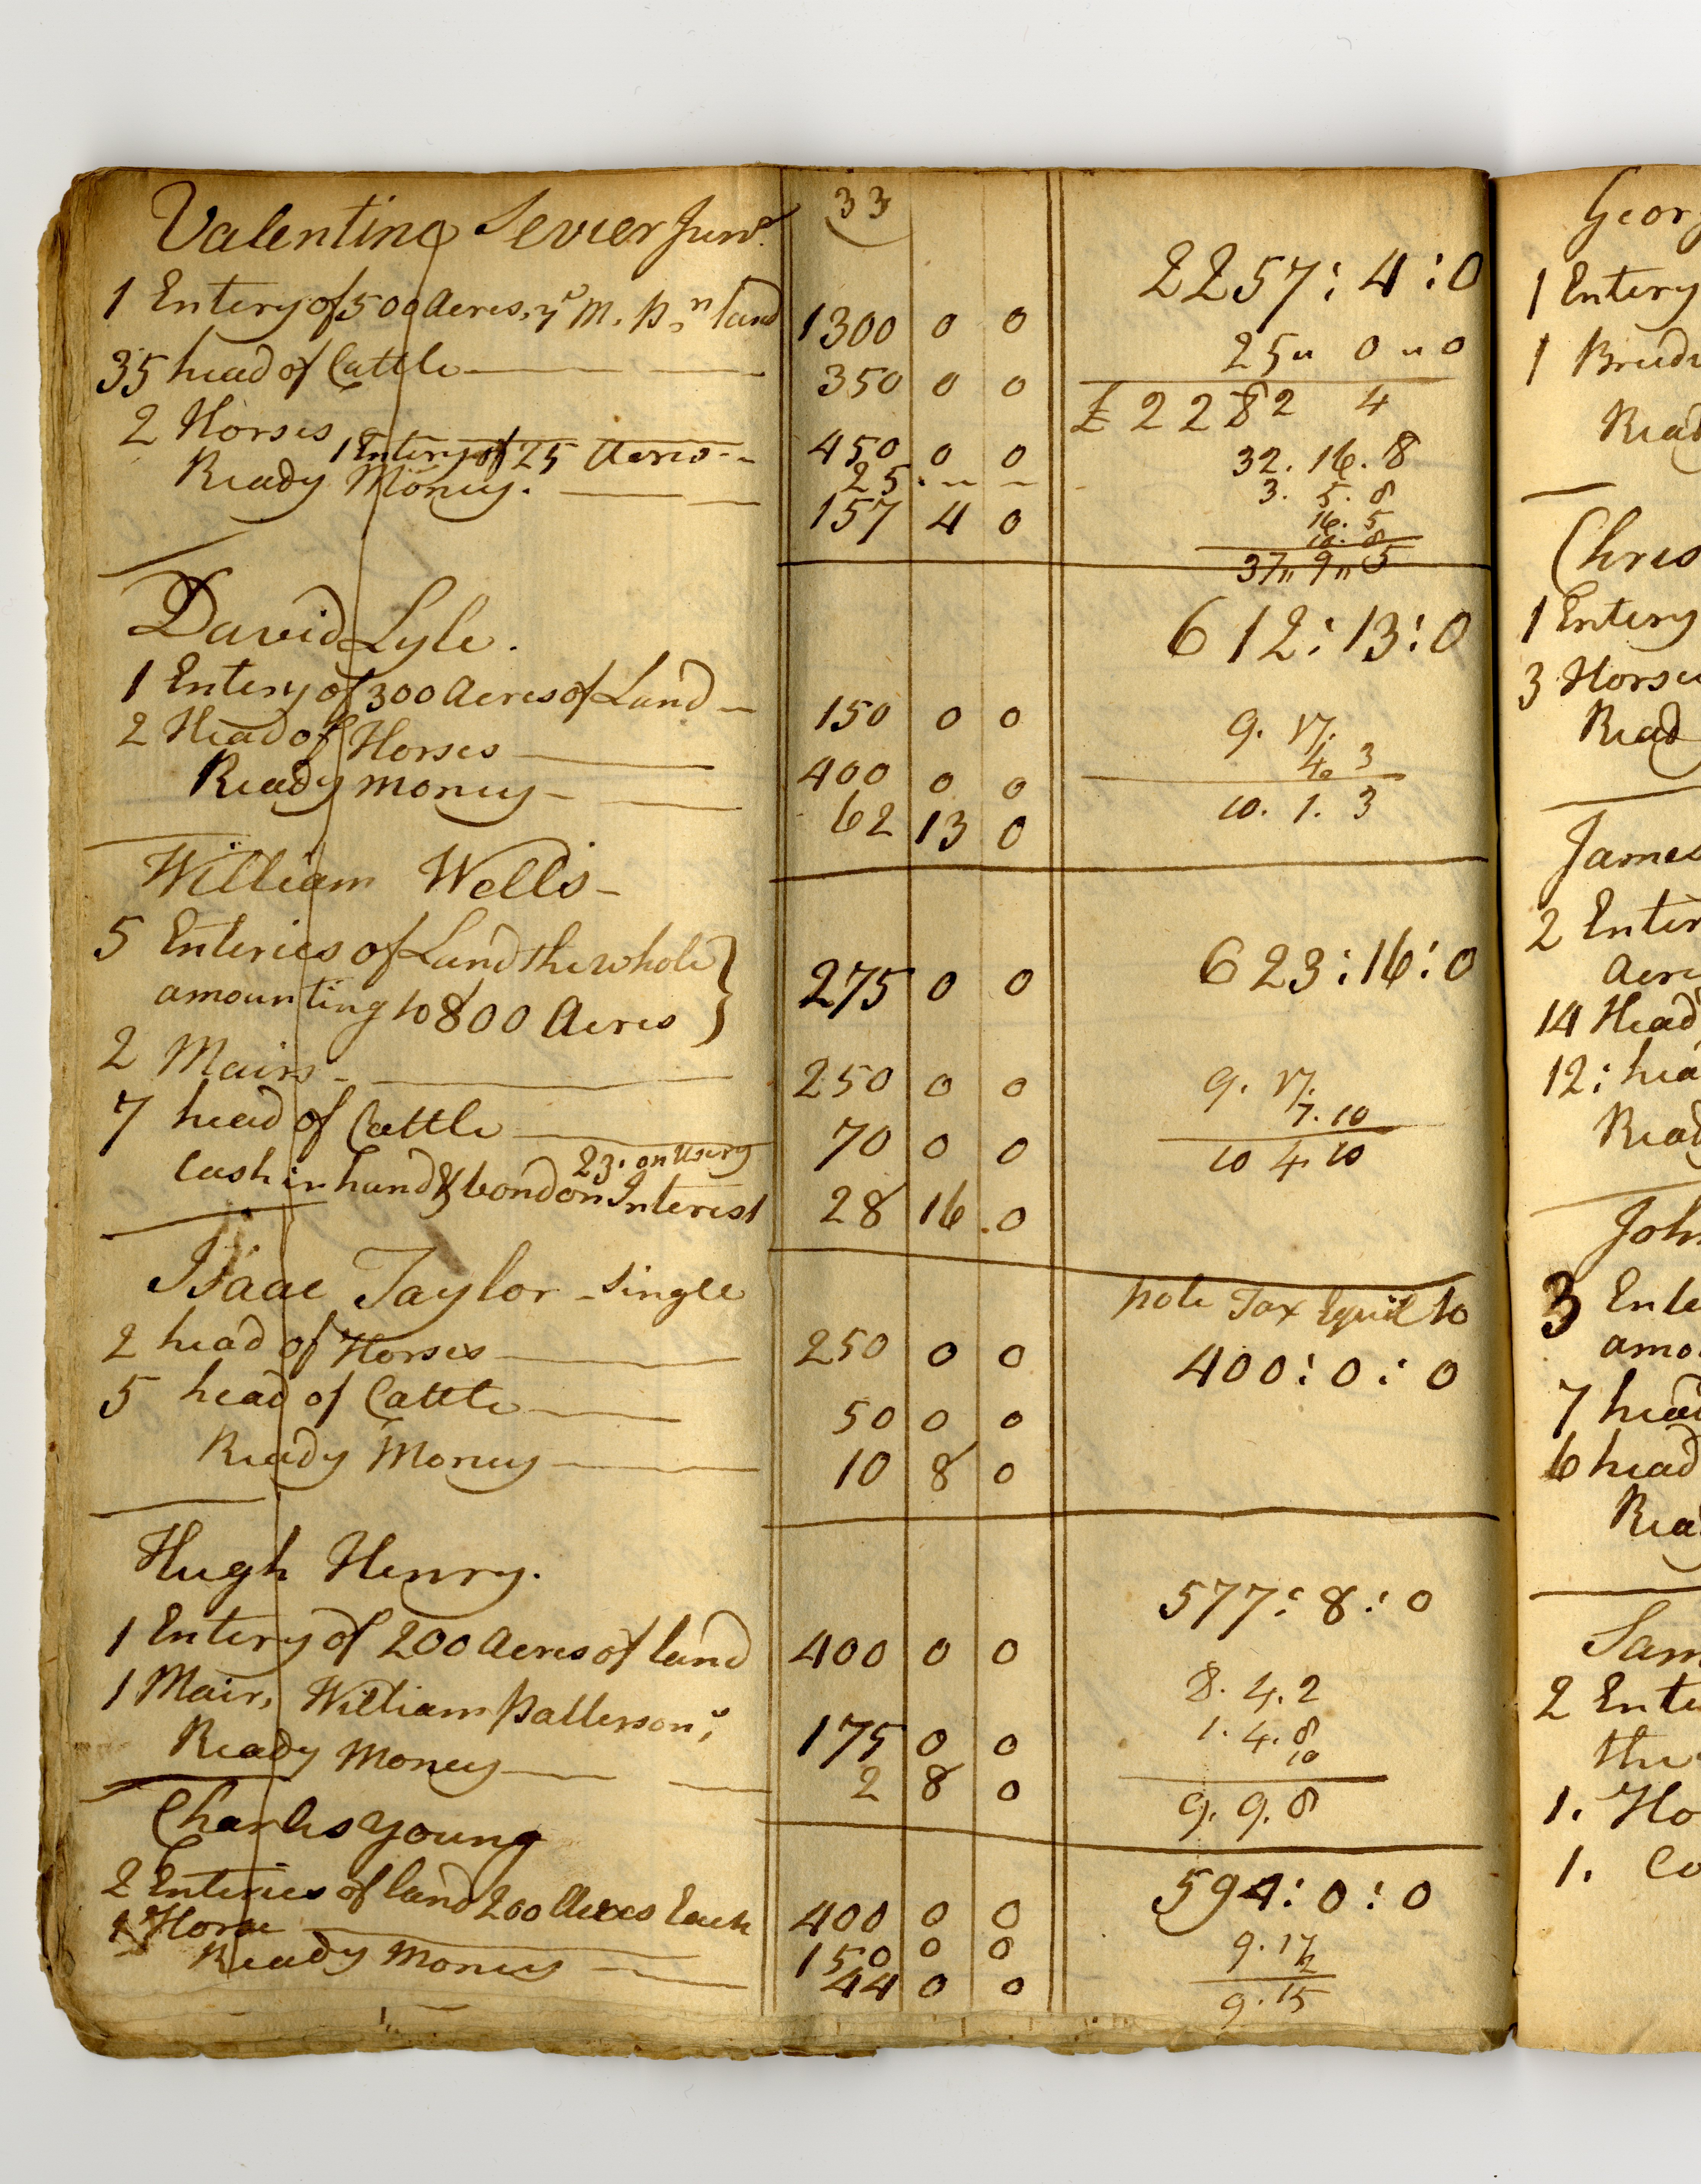 33
Valentine Sevier Junr.
2257:4:0
1 Entery of 500 Acres, ye M. P.n land 1300 0 0
25" 0 "0
35 head of Cattle 350 0 0
£ 2282 4
2 Horses 450 0 0
32.16.8
1 Entery of 25 Acres 25
3. 5. 8
Ready Money. 157 4 0
16. 5
10. 8
37" 9" 5
David Lyle.
612:13:0
1 Entery of 300 Acres of Land 150 0 0
9. 17.
2 Head of Horses 400 0 0
4. 3
Ready money 62 13 0
10. 1. 3
William Wells
5 Enteries of Land the whole
623:16:0
amounting to 800 Acres 275 0 0
2 Mairs 250 0 0
9. 17.
7. 10
7 head of Cattle 70 0 0
10 4 10
23. on Usery
Cash in hand & bond on Interest 28 16 0
Isaac Taylor - Single
pole Tax Equil to
2 head of Horses 250 0 0
400:0:0
5 head of Cattle 50 0 0
Ready Money 10 8 0
Hugh Henry.
577:8:0
1 Entery of 200 Acres of land 400 0 0
8. 4. 2
1 Mair, William Pattersons, 175 0 0
1. 4. 8
10
Ready Money 2 8 0
9. 9. 8
Charles Young
594:0:0
2 Enteries of land 200 Acres Each 400 0 0
9. 17
1 Horse 150 0 0
2
Ready Money 44 0 0
9. 15
Geor
1 Entery
1 Brudi
Read
Chris
1 Entery
3 Horses
Read
James
2 Enter
Acre
14 Head
12: hea
Read
Joh
3 Ente
amo
7 head
6 head
Rea
Sam
2 Ente
the
1. Ho
1. Co